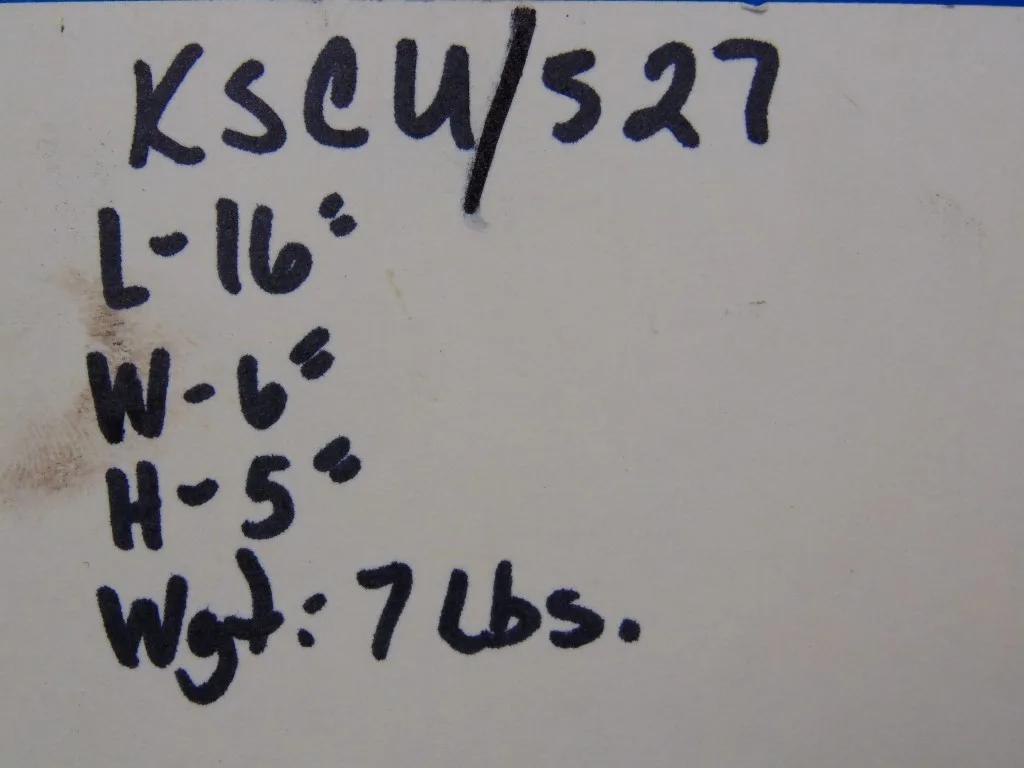 KSCU/S27
L-16"
W-6"
H-5"
Wgt: 7 Lbs.